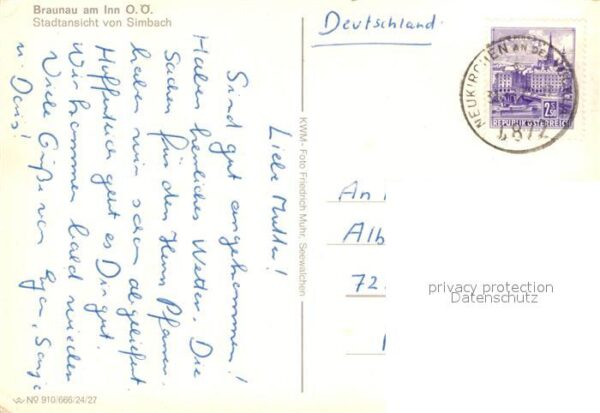 Braunau am Inn O.Ö.
Stadtansicht von Simbach
Liebe Mutter!
Sind gut angekommen!
Haben herrliches Wetter. Die
Sachen für den Herrn Pfarrer
haben wir schon abgeliefert.
Hoffentlich geht es Dir gut.
Wir kommen bald wieder
Viele Grüße von
u. Doris!
KWM- Foto Friedrich Muhr, Seewalchen
Nº 910/666/24/27
Deutschland
NEUKIRCHEN AN DER
4872
2.50
REPUBLIK ÖSTERREICH
An
Alb
72
privacy protection
Datenschutz